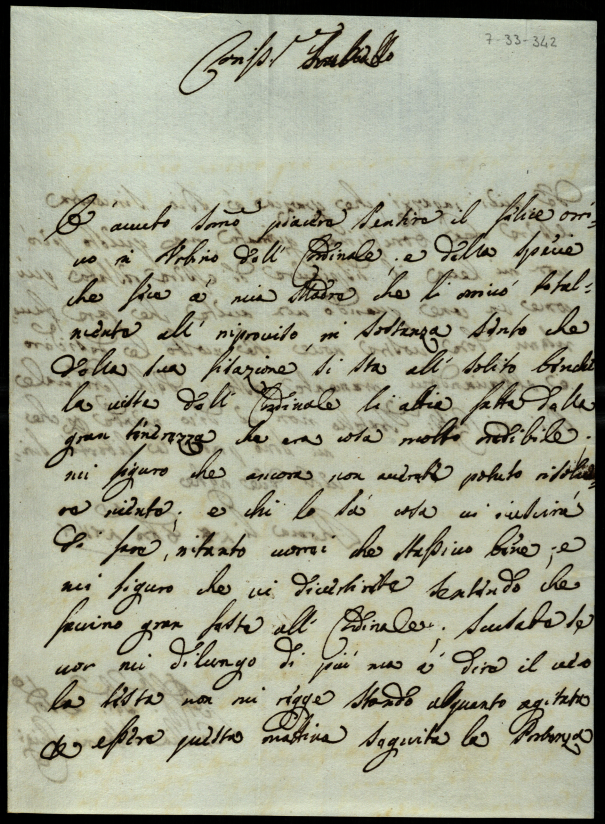 7-33-342
Cariss.mo Fratello
È avuto sommo piacere sentire il felice arri-
vo in Urbino dell' Cardinale; e della specie
che fece à mia Madre che li arrivò total-
mente all' improviso in sostanza sento che
della sua situazione si sta all' solito benche
la vista dell' Cardinale li abbia fatta della
gran tenerezza che era cosa molto credibile.
mi figuro che ancora non averete potuto risolve-
re niente; e chi lo sà cosa vi riuscirà
di fare, intanto vorrei che stassivo bene; e
mi figuro che vi divertirete sentendo che
faccino gran feste all' Cardinale; scusate se
non mi dilungo di più ma à dire il vero
la testa non mi regge stando alquanto agitata
da essere questa mattina seguita la